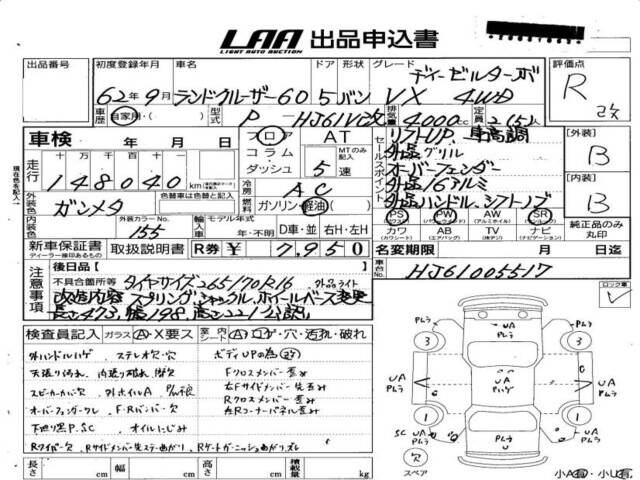 LAA 出品申込書
LIGHT AUTO AUCTION
出品番号 初度登録年月 車名 ドア 形状 グレード 評価点
62年9月 ランドクルーザー60 5 バン VX 4WD ディーゼルターボ R 改
車歴 自家用・( ) 型式 P-HJ61V改 排気量 4000cc 定員 2(5)人
車検 年 月 日 フロア コラム ダッシュ AT MTのみ記入 5速
セールスポイント
リフトUP. 車高調
外品グリル
オーバーフェンダー
外品16アルミ
外品ハンドル.シフトノブ
[外装] B
[内装] B
走行 十万千百十 148040 km
現在色を記入→
外装色 ガンメタ 色替車は色替と記入
冷房 AC
燃料 ガソリン・軽油( )
内装色 外装カラーNo. 155 輸入車 モデル年式 年・不明 D車・並 右H・左H
PS (パワステ) PW (パワーウィンド) AW (アルミホイル) SR (サンルーフ)
カワ (カワシート) AB (エアバッグ) TV (テレビ) ナビ (ナビゲーション)
純正品のみ丸印
新車保証書 ディーラー捺印あるもの 取扱説明書 R券 ¥ 7,950
名変期限 月 日迄
注意事項 後日品( )
不具合箇所等 タイヤサイズ265/70R16 外品ライト
改造内容 スプリング.シャックル.ホイールベース変更
長さ473.幅198.高さ221公認
車台No. HJ61005517
ロック車
検査員記入 ガラス A・X要ス 室内 シート A・コゲ・穴・汚れ・破れ
外ハンドルハゲ ステレオ欠・穴 ボディUPの為 改
天張り汚れ. 内張り破れ.
Fクロスメンバー歪み
スピーカーカバー欠
オーバーフェンダークレ. F・Rバンパー欠 Rクロスメンバー歪み
下廻り黒P.SC オイルにじみ
長さ cm 幅 cm 高さ cm 積載量 kg
3 3 1 1
UA Pムラ
Pハゲ
SC UA
欠
スペア
小A有 小U有